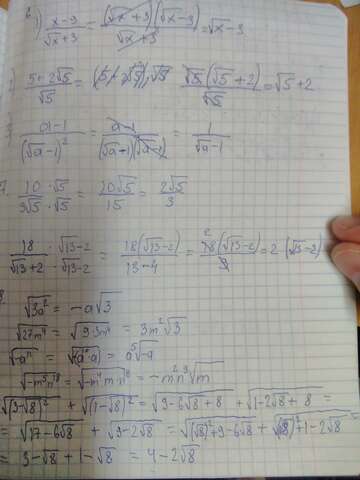 6
1) (x-9)/(√x+3) = ((√x+3)(√x-3))/(√x+3) = √x-3
(5+2√5)/√5 = (√5(√5+2))/√5 = √5+2
3. (a-1)/(√a-1)² = (a-1)/((√a+1)(√a-1)) = 1/(√a-1)
7. (10·√5)/(3√5·√5) = (10√5)/15 = (2√5)/3
18/(√13+2) · (√13-2)/(√13-2) = (18(√13-2))/(13-4) = (18(√13-2))/9 = 2(√13-2)
√3a² = -a√3
√27m⁴ = √9·3m⁴ = 3m²√3
= a⁵√-a
= -m²n⁹√m
√(3-√8)² + √(1-√8)² = √9-6√8+8 + √1-2√8+8 =
= √17-6√8 + √9-2√8 = √(√8)²+9-6√8 + √(√8)²+1-2√8
= 3-√8+1-√8 = 4-2√8